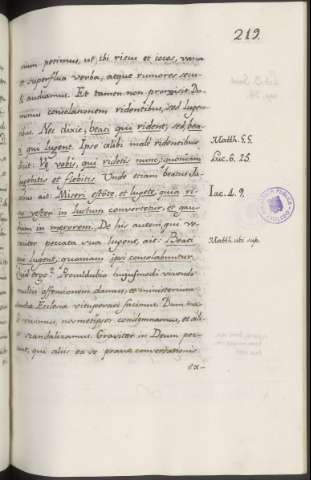 219.
sium potimus, ut ibi risus et iocos, vana
et superflua verba, atque rumores secu-
li audiamus. Et tamen non promisit Do-
minus consolationem ridentibus, sed lugen-
tibus. Nec dixit, beati qui rident, sed bea-
ti qui lugent. Ipse alibi male ridentibus
dicit: Væ vobis, qui ridetis nunc, quoniam
lugebitis et flebitis. Unde etiam beatus Ia-
cobus ait: Miseri estote, et lugete, quia ri-
sus vester in luctum convertetur, et gau-
dium in mœrorem. De his autem qui ve-
raciter peccata sua lugent, ait: Beati
qui lugent, quoniam ipsi consolabuntur.
Quid ergo? Pro vilitate huiusmodi vivendo
multis offensionem damus, et ministerium
Ecclesia vituperari facimus. Deum
nosmetipsos condemnamus, et
scandalizamus. Graviter in Deum pec-
cant, qui aliis ex se pravæ conversationis
ex-
Matth. 5. 5.
Luc. 6. 25.
Iac. 4. 9.
Matth. ubi sup.